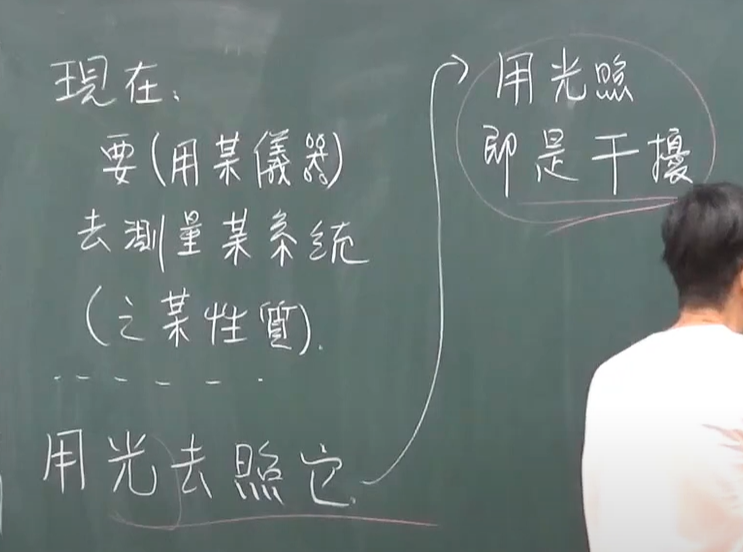 現在、
要(用某儀器)
去測量某系統
(之某性質).
用光去照它.
用光照
即是干擾